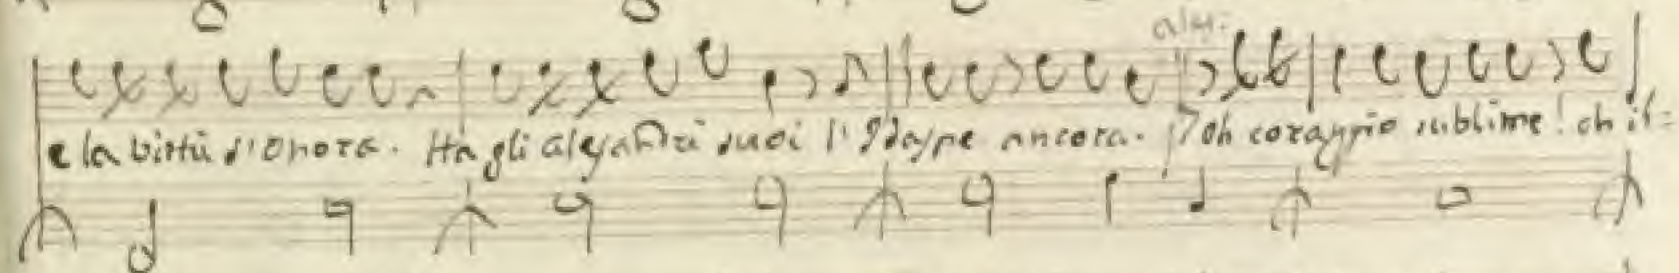 aless:
e la virtù s'onora. Hà gli alessandri suoi l'Idaspe ancora. Oh coraggio sublime! oh il=